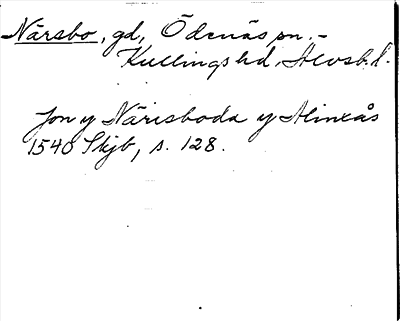 Närsbo, gd, Ödenäs sn.-
Kullings hd, Älvsb. l.
Jon y Närisboda y Alineås
1540 Skjb, s. 128.